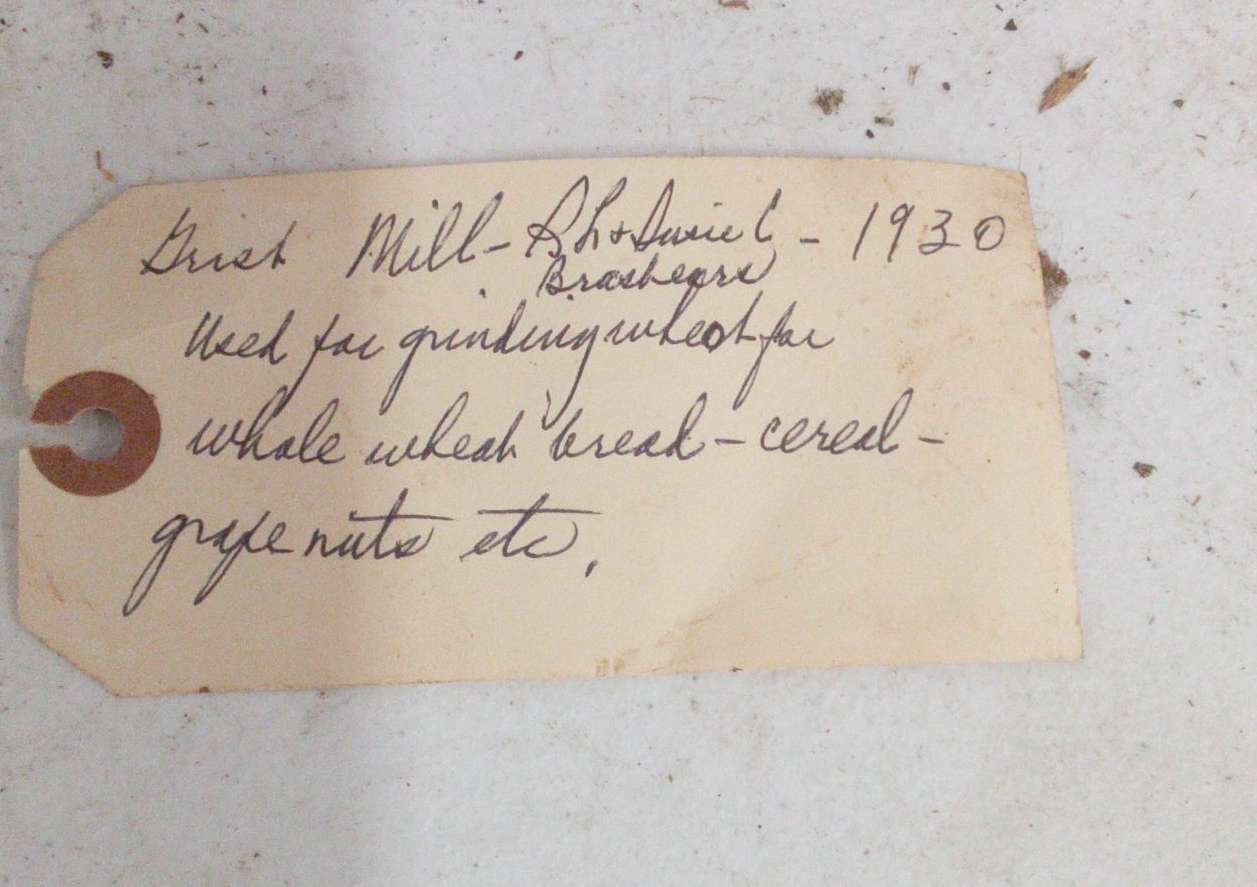 Grist Mill - S L + Susie C - 1930
Brashears
Used for grinding wheat for
whole wheat bread - cereal -
grape nuts etc.